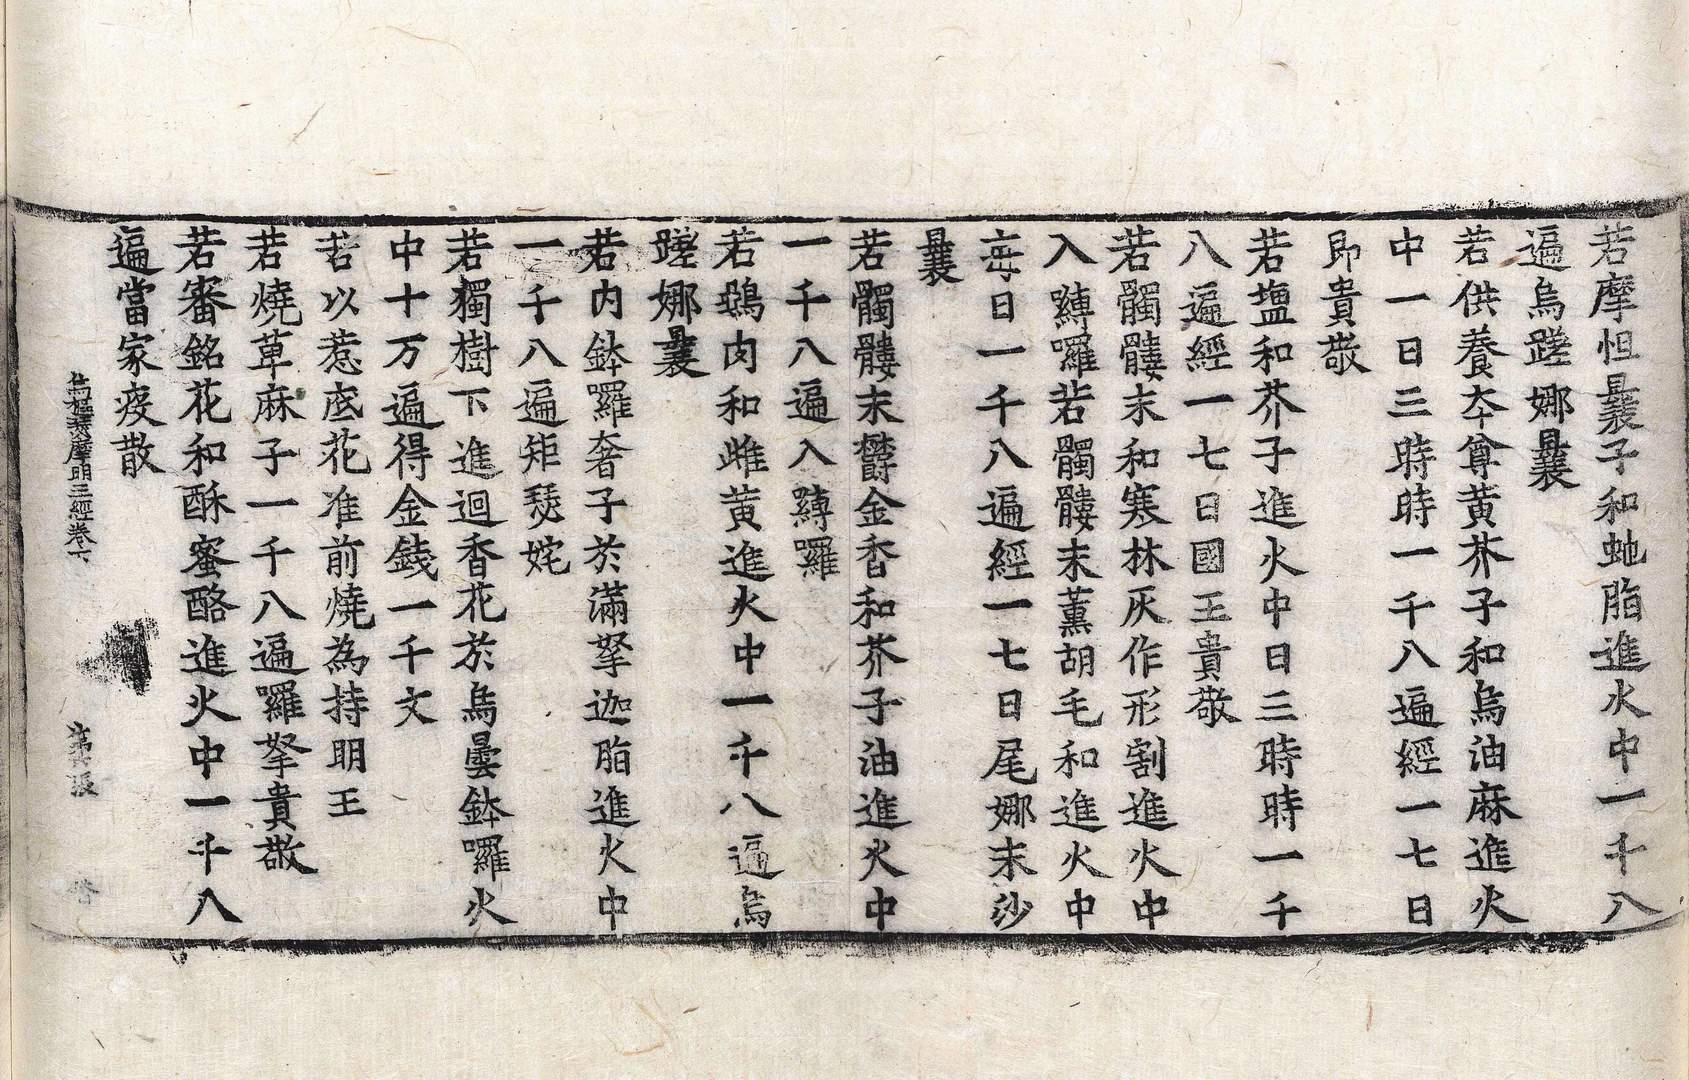 若摩怛曩子和虵脂進火中一千八
遍烏蹉娜曩
若供養本尊黄芥子和烏油麻進火
中一日三時時一千八遍經一七日
即貴敬
若塩和芥子進火中日三時時一千
八遍經一七日國王貴敬
若髑髏末和寒林灰作形割進火中
入縛囉若髑髏末薰胡毛和進火中
每日一千八遍經一七日尾娜末沙
曩
若髑髏末欝金香和芥子油進火中
一千八遍入縛囉
若鵄肉和雌黄進火中一千八遍烏
蹉娜曩
若内鉢囉奢子於滿拏迦脂進火中
一千八遍矩瑟姹
若獨樹下進迴香花於烏曇鉢囉火
中十万遍得金錢一千文
若以惹底花准前燒為持明王
若燒草麻子一千八遍囉拏貴敬
若審銘花和酥蜜酪進火中一千八
遍當家疫散
摩明王經卷下
張